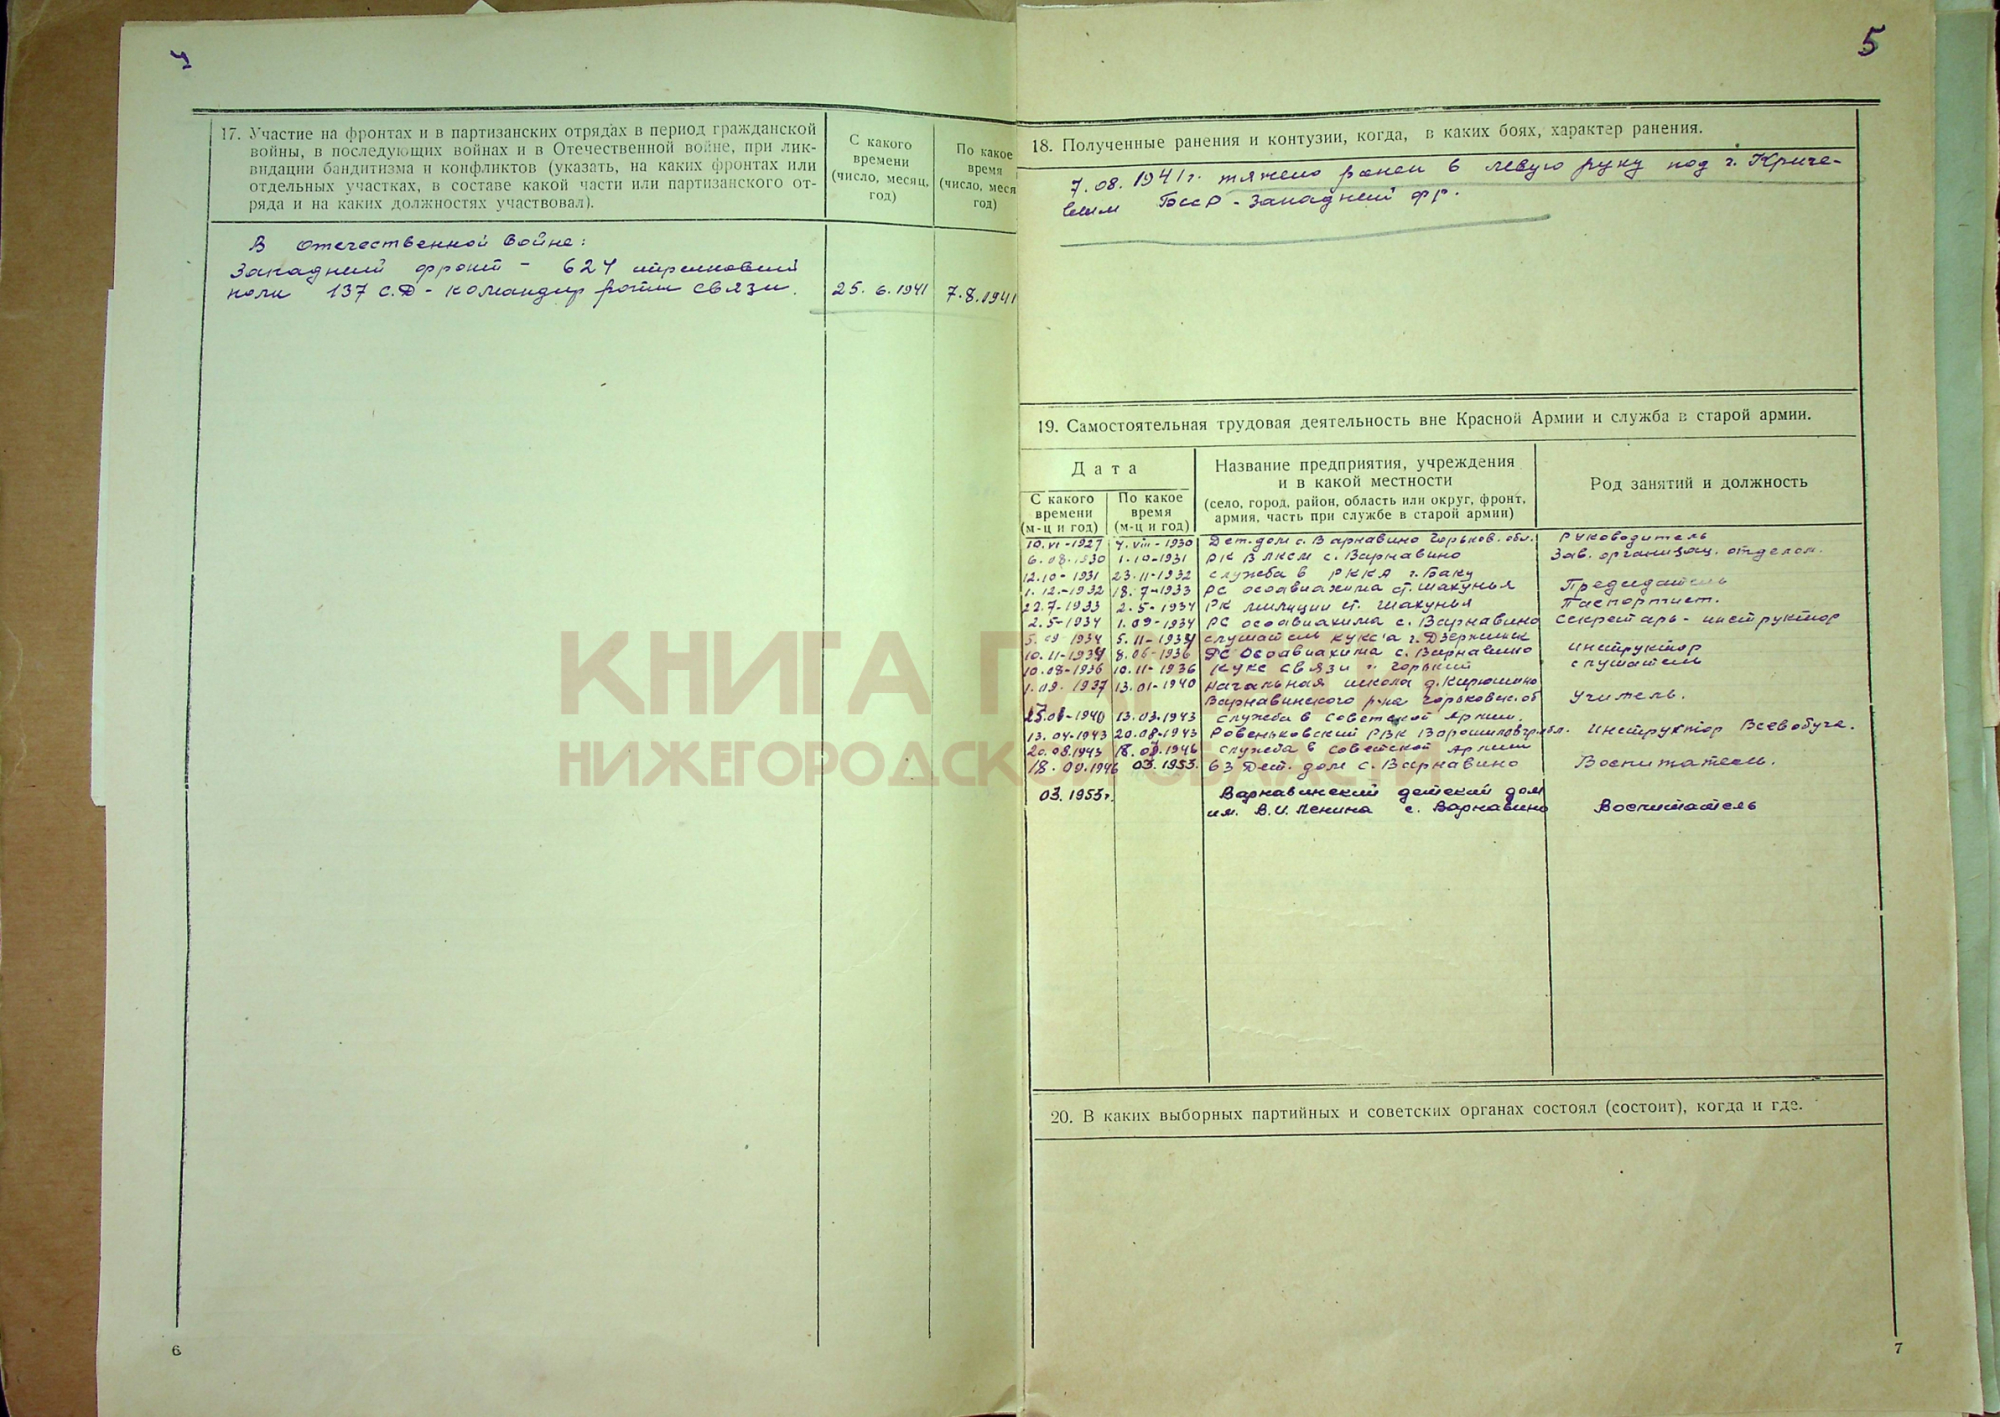 17. Участие на фронтах и в партизанских отрядах в период гражданской
войны, в последующих войнах и в Отечественной войне, при лик-
видации бандитизма и конфликтов (указать, на каких фронтах или
отдельных участках, в составе какой части или партизанского от-
ряда и на каких должностях участвовал).
С какого
времени
(число, месяц,
год)
По какое
время
(число, меся
год)
В отечественной войне:
Западный фронт - 624 стрелковый
полк 137 с.Д - командир роты связи.
25. 6. 1941
7.8.1941
6
5
18. Полученные ранения и контузии, когда, в каких боях, характер ранения.
7.08.1941г. тяжело ранен в левую руку под г. Криче-
вым БССР - Западный фр.
19. Самостоятельная трудовая деятельность вне Красной Армии и служба в старой армии.
Дата
Название предприятия, учреждения
и в какой местности
(село, город, район, область или округ, фронт,
армия, часть при службе в старой армии)
Род занятий и должность
С какого
времени
(м-ц и год)
По какое
время
(м-ц и год)
10.VI-1927 4.VIII-1930 Дет.дом с. Варнавино Горьков. обл. Руководитель
6.08.1930 1.10-1931 РК ВЛКСМ с. Варнавино Зав. организац. отделом.
12.10-1931 23.11-1932 служба в РККА г. Баку
1.12-1932 18.7-1933 РС осоавиахима ст. Шахунья Председатель
22.7-1933 2.5-1934 РК милиции ст. Шахунья Паспортист.
2.5-1934 1.09-1934 РС осоавиахима с. Варнавино секретарь - инструктор
5.09-1934 5.11-1934 слушатель кукс'а г. Дзержинск
10.11-1934 8.06-1936 РС Осоавиахима с. Варнавино инструктор
10.08-1936 10.11-1936 Кукс связи г. Горький слушатель
1.09.1937 13.01-1940 Начальная школа д. Кирюшино
Варнавинского р-на Горьковск. об Учитель.
1940 13.03.1943 служба в советской Армии.
13.04-1943 20.08-1943 Ровеньковский РВК Ворошиловгр. обл. Инструктор Всевобуча.
20.08.1943 1946 служба в советской Армии
1946 03.1953. 63 Дет. дом с. Варнавино Воспитатель.
03.1953г. Варнавинский детский дом
им. В.И. Ленина с. Варнавино Воспитатель
20. В каких выборных партийных и советских органах состоял (состоит), когда и где.
7
КНИГА П
НИЖЕГОРОДСКОЙ ОБЛАСТИ